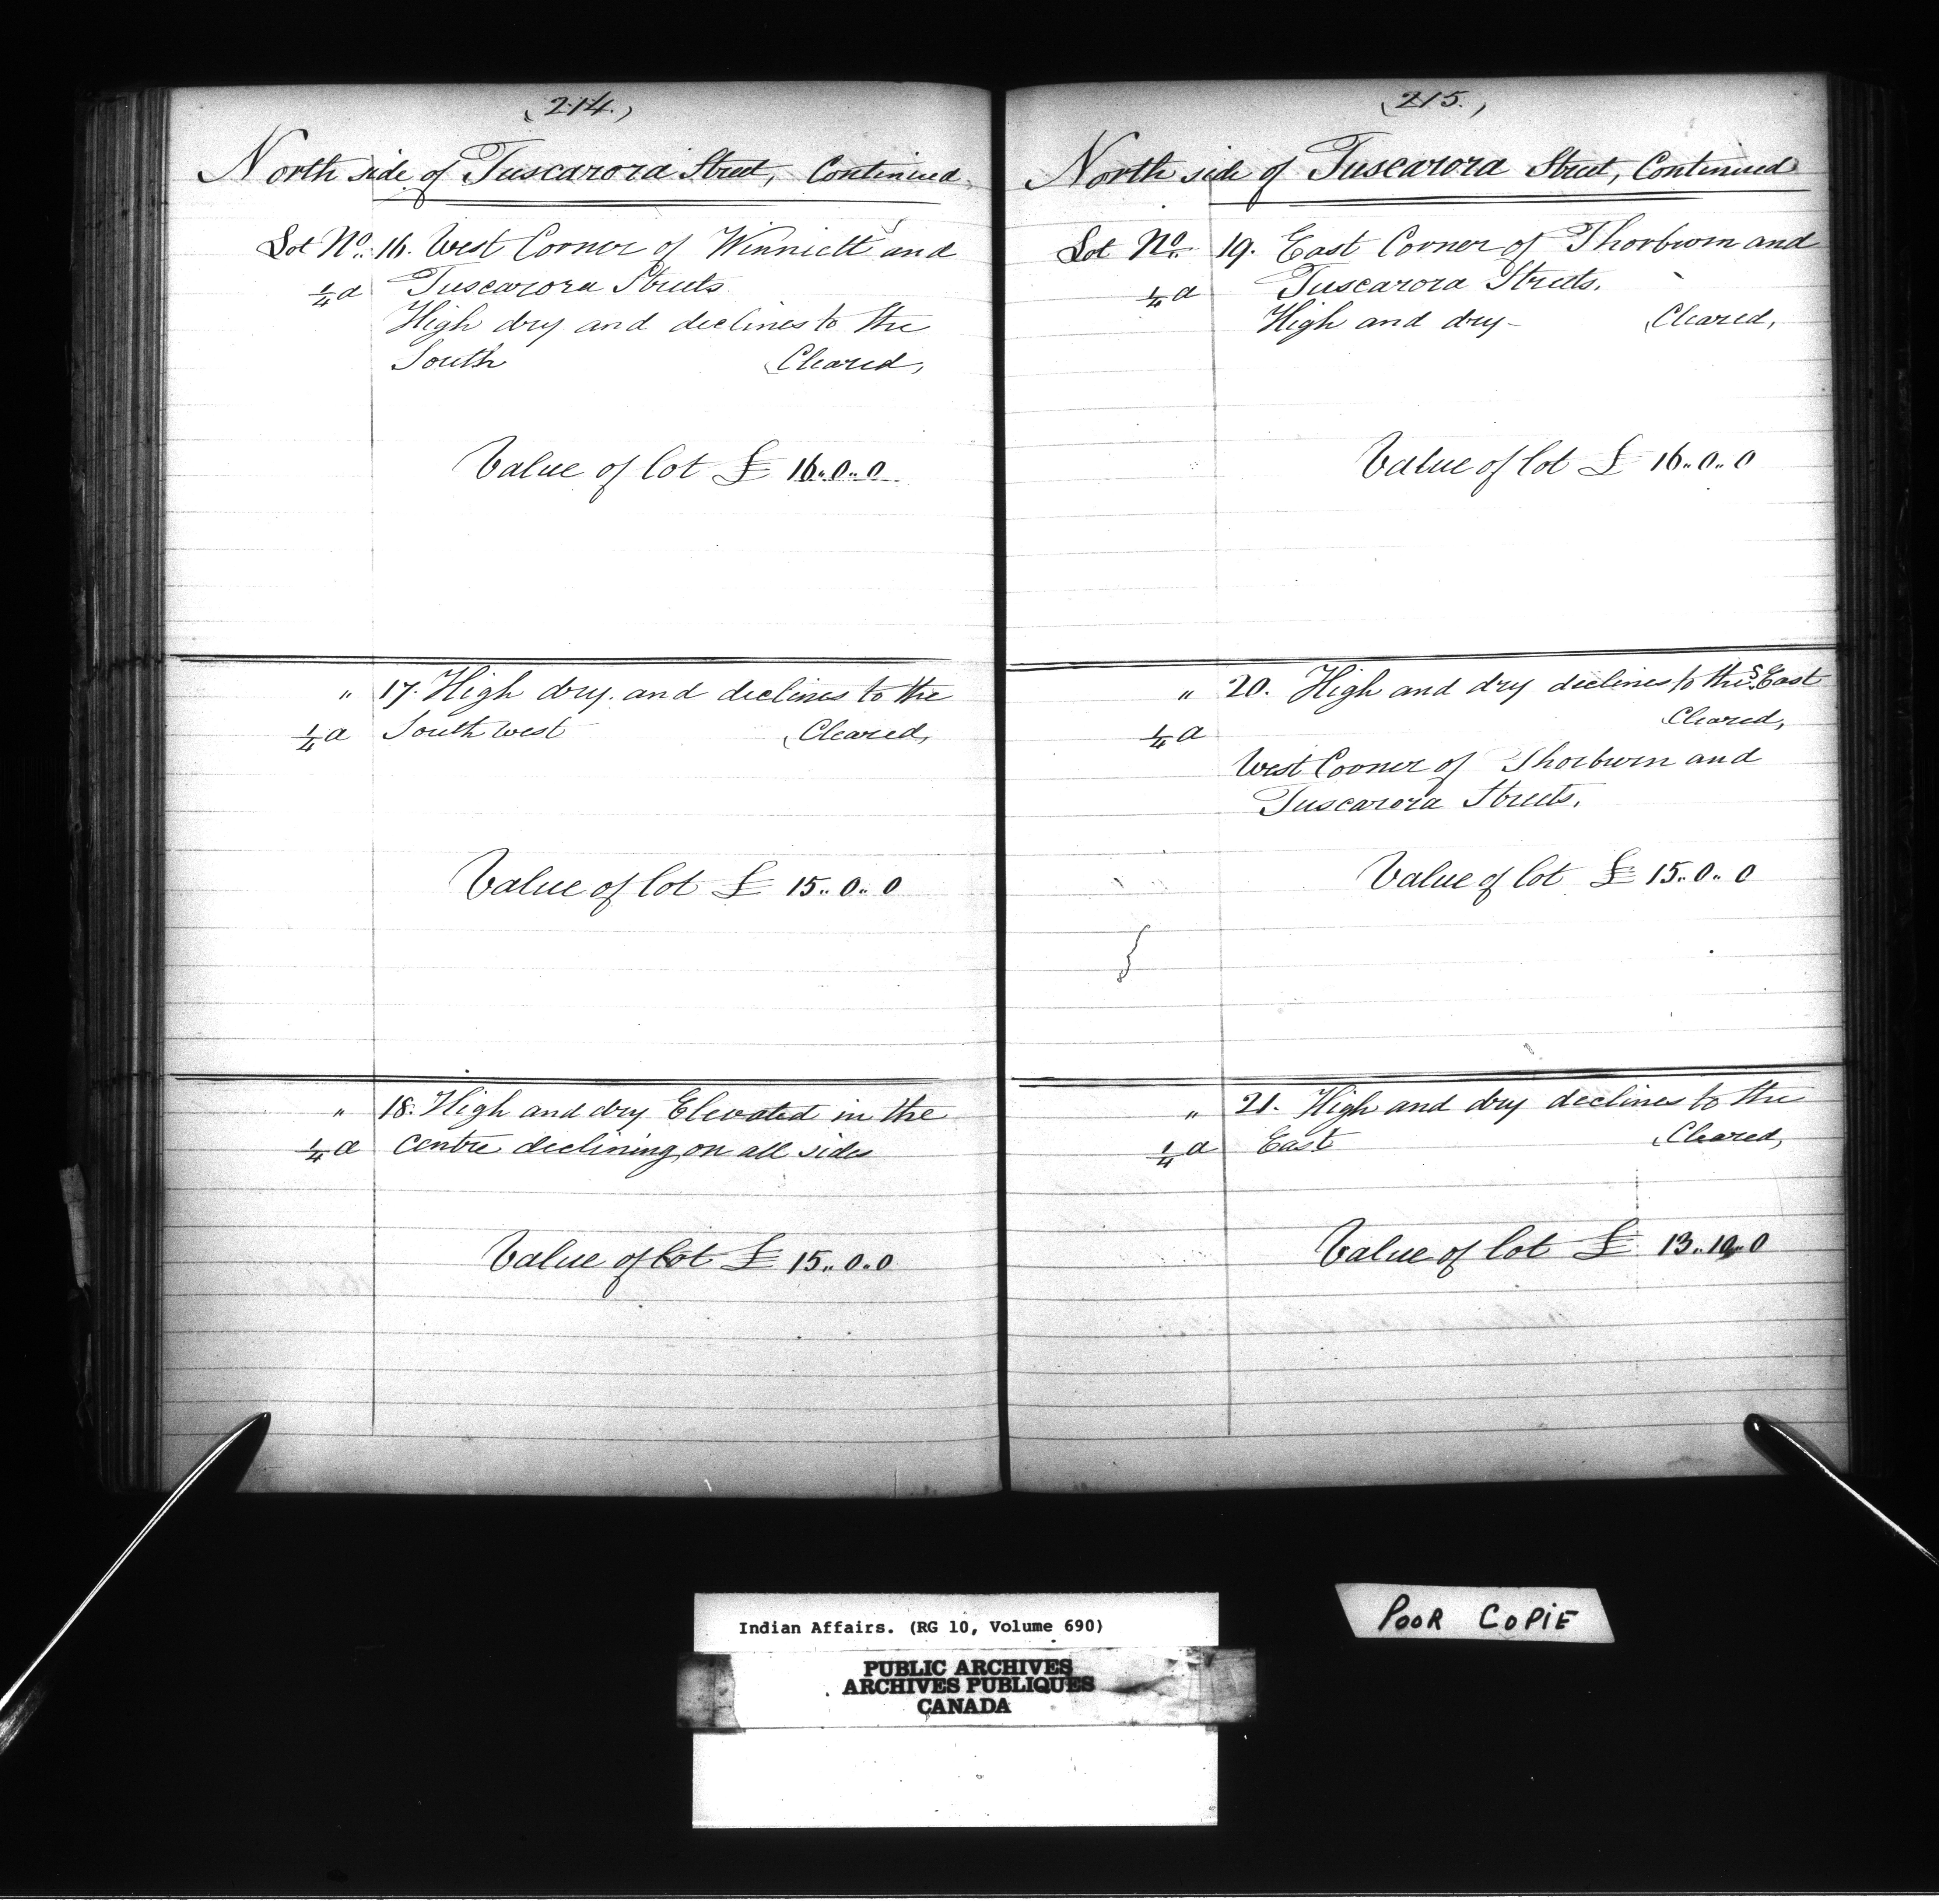 (214.)
North side of Tuscarora Street, Continued
Lot No. 16. West Corner of Winniett and
1/4 a Tuscarora Streets
High dry and declines to the
South (Cleared,
Value of lot £ 16..0..0
" 17. High dry and declines to the
1/4 a South west (Cleared,
Value of lot £ 15..0..0
" 18. High and dry Elevated in the
1/4 a centre declining on all sides
Value of lot £ 15..0..0
(215.)
North side of Tuscarora Street, Continued
Lot No. 19. East Corner of Thorburn and
1/4 a Tuscarora Streets.
High and dry - (Cleared,
Value of lot £ 16..0..0
" 20. High and dry declines to the S. East
1/4 a (Cleared,
West Corner of Thorburn and
Tuscarora Streets.
Value of lot £ 15..0..0
" 21. High and dry declines to the
1/4 a East (Cleared,
Value of lot £ 13..10..0
Indian Affairs. (RG 10, Volume 690)
PUBLIC ARCHIVES
ARCHIVES PUBLIQUES
CANADA
POOR COPIE